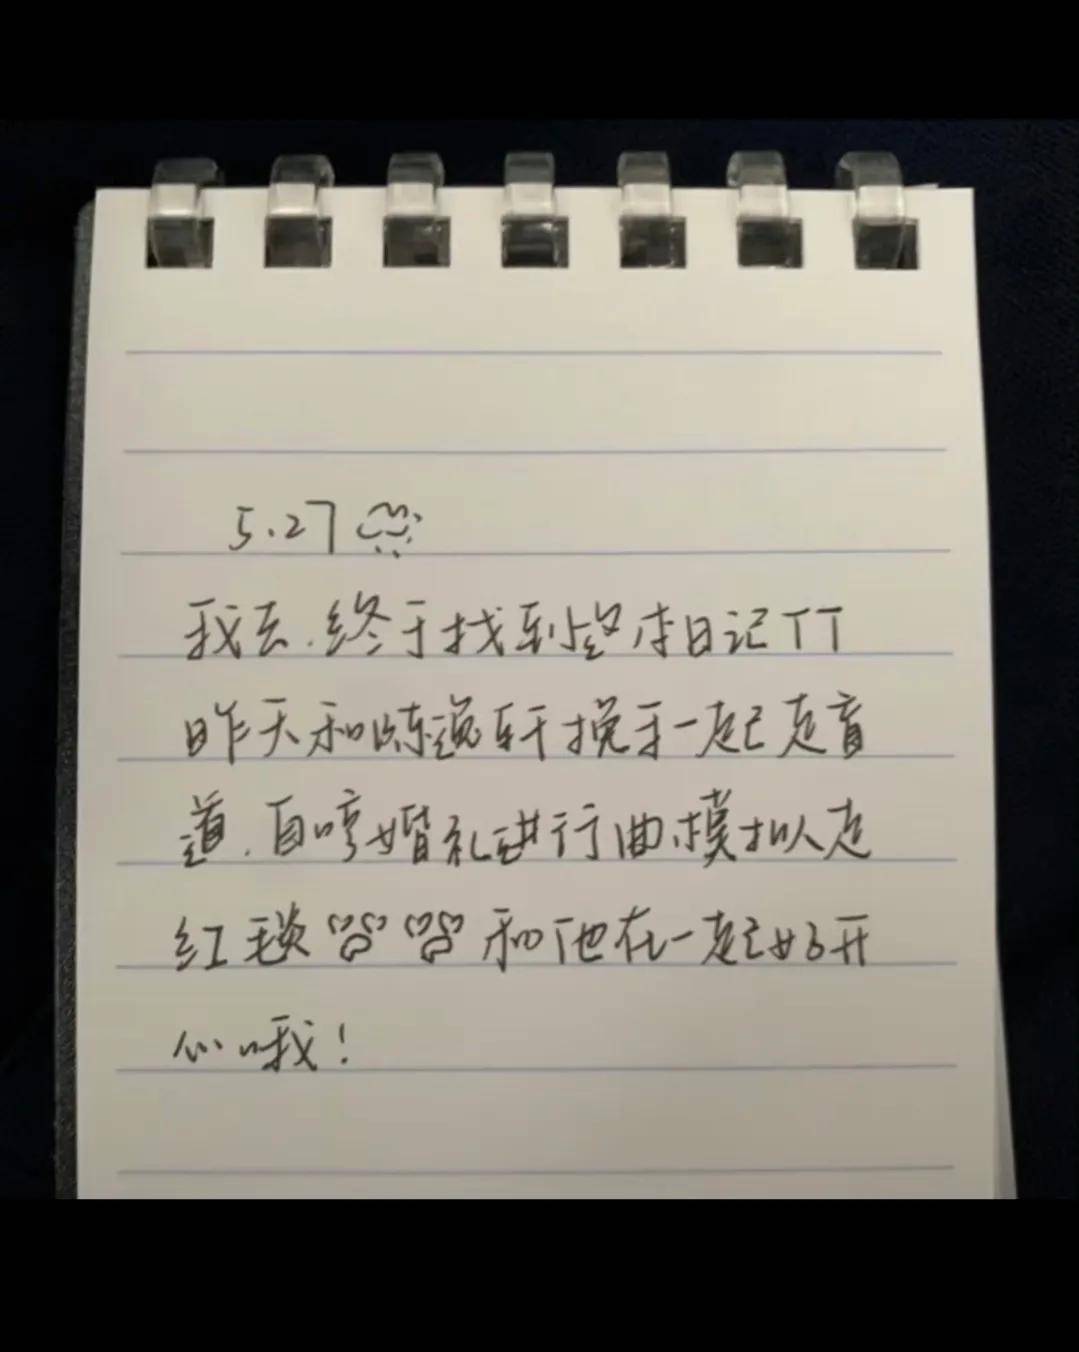 5.27
我去.终于找到这本日记TT
昨天和陈逸轩挽手一起走盲
道.自哼婚礼进行曲模拟走
红毯 和他在一起好开
心哦!